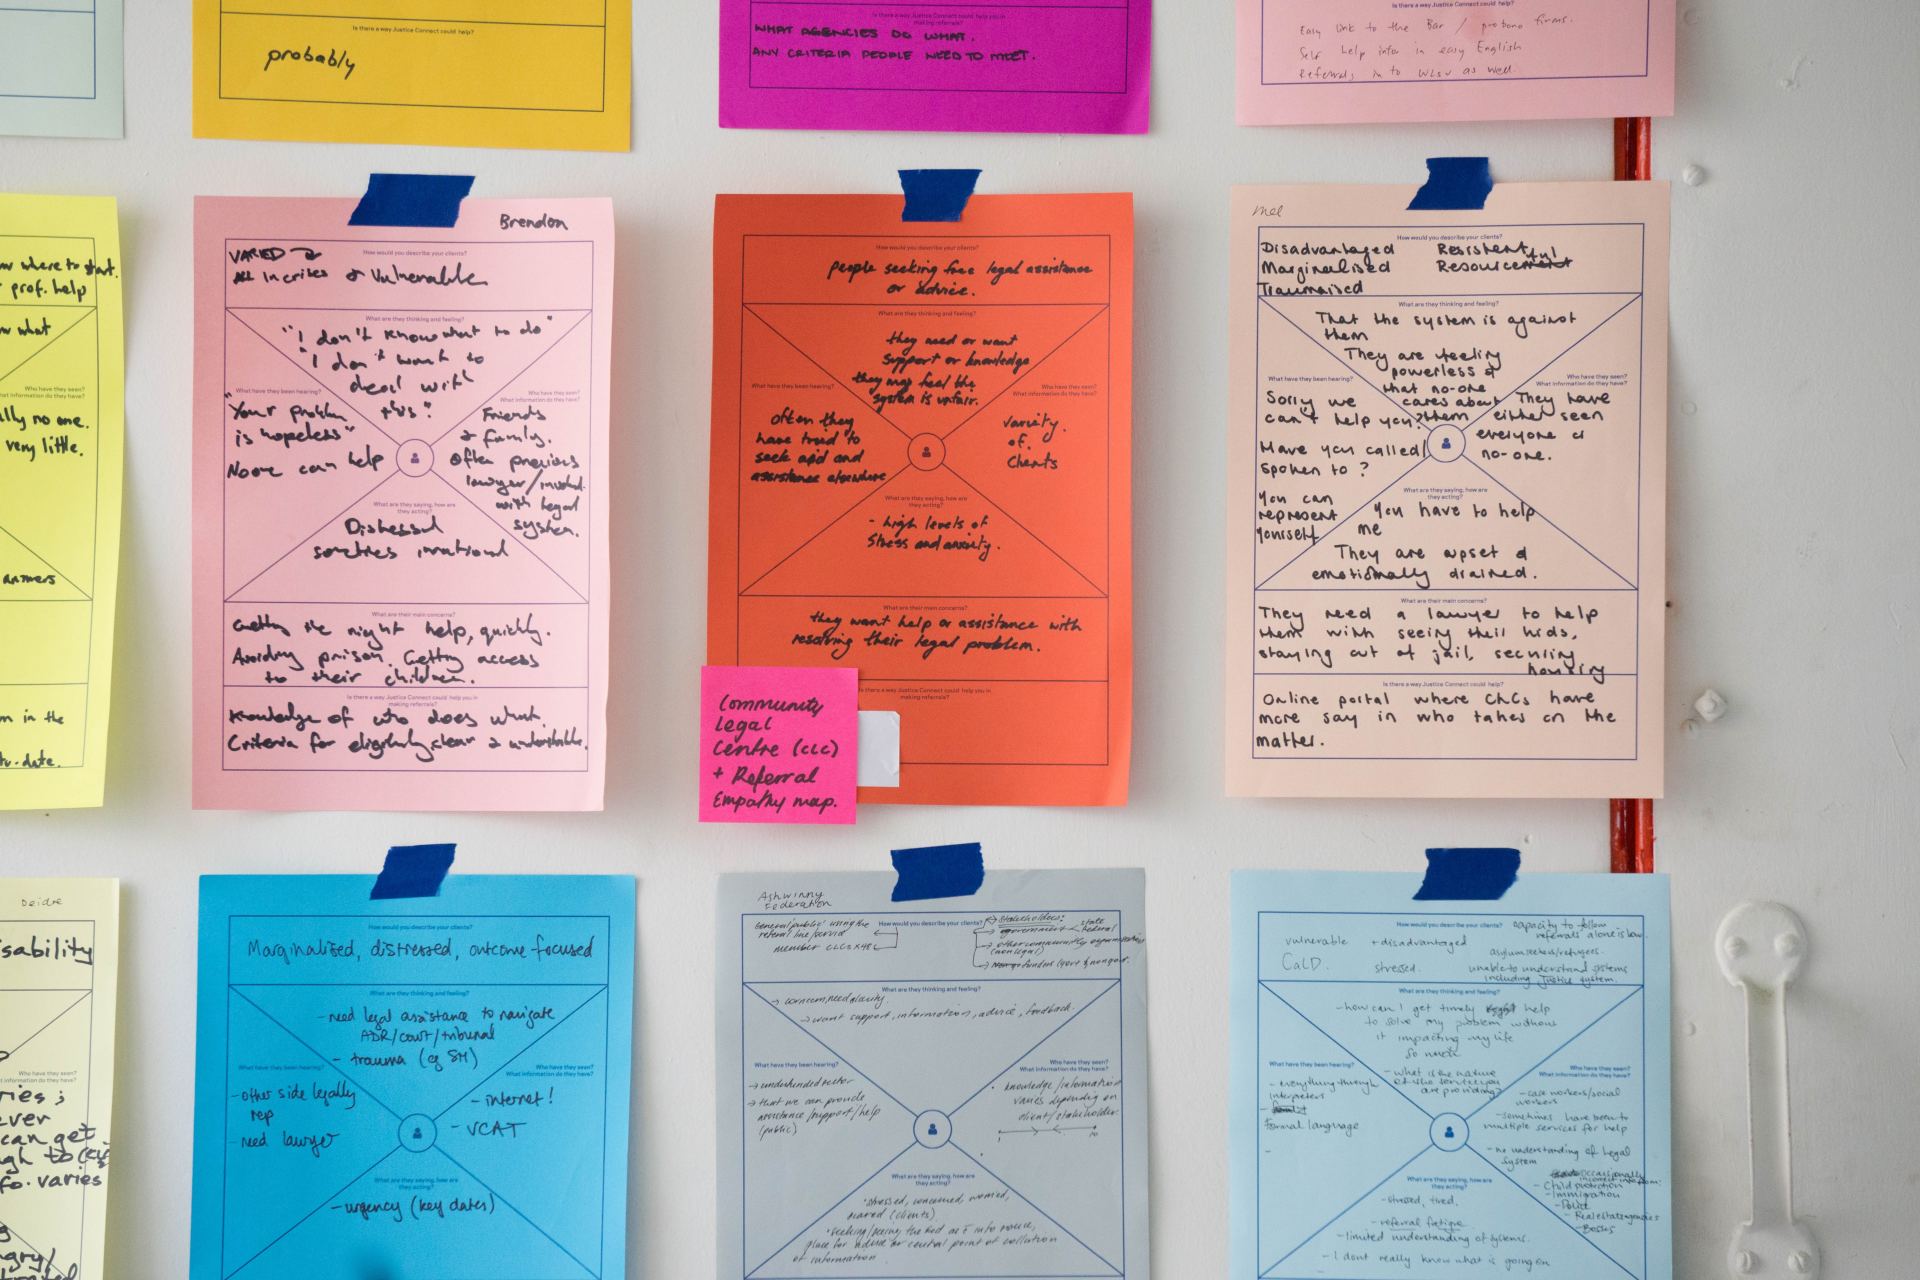 Is there a way Justice Connect could help?
probably
Is there a way Justice Connect could help you in
making referrals?
WHAT AGENCIES DO WHAT.
ANY CRITERIA PEOPLE NEED TO MEET.
Is there a way Justice Connect could help?
Easy link to the Bar / probono firms.
Self help infor in easy English
Referrals in to WLSV as well.
where to start.
prof. help
what
no one.
very little.
answers
in the
date.
Brendon
How would you describe your clients?
VARIED
All in crises & Vulnerable
What are they thinking and feeling?
"I don't know what to do"
"I don't want to
deal with
this"
What have they been hearing?
"Your problem
is hopeless"
No one can help
Who have they seen?
What information do they have?
Friends
& family.
Often previous
lawyer/
with legal
system.
What are they saying, how are
they acting?
Distressed
sometimes irrational
What are their main concerns?
Getting the right help, quickly.
Avoiding prison. Getting access
to their children.
Is there a way Justice Connect could help you in
making referrals?
Knowledge of who does what.
Criteria for eligibility clear & understandable.
How would you describe your clients?
people seeking free legal assistance
or advice.
What are they thinking and feeling?
they need or want
support or knowledge
they may feel the
system is unfair.
What have they been hearing?
often they
have tried to
seek aid and
assistance elsewhere
Who have they seen?
What information do they have?
variety
of
clients
What are they saying, how are
they acting?
- high levels of
stress and anxiety.
What are their main concerns?
they want help or assistance with
resolving their legal problem.
Is there a way Justice Connect could help you in
making referrals?
Community
Legal
Centre (CLC)
+ Referral
Empathy map.
Mel
How would you describe your clients?
Disadvantaged Resistent
Marginalised Resourceful
Traumatised
What are they thinking and feeling?
That the system is against
them
They are feeling
powerless &
that no-one
cares about
them
What have they been hearing?
Sorry we
can't help you?
Have you called/
spoken to?
You can
represent
yourself
Who have they seen?
What information do they have?
They have
either seen
everyone or
no-one.
What are they saying, how are
they acting?
You have to help
me
They are upset &
emotionally drained.
What are their main concerns?
They need a lawyer to help
them with seeing their kids,
staying out of jail, securing
housing
Is there a way Justice Connect could help?
Online portal where CLCs have
more say in who takes on the
matter.
Deidre
isability
Who have they seen?
What information do they have?
ries;
ever
can get
to
fo. varies
How would you describe your clients?
Marginalised, distressed, outcome-focused
What are they thinking and feeling?
- need legal assistance to navigate
ADR/court/tribunal
- trauma (eg SH)
What have they been hearing?
- other side legally
rep
- need lawyer
Who have they seen?
What information do they have?
- internet!
- VCAT
What are they saying, how are
they acting?
- urgency (key dates)
Ashwinny
Federation
How would you describe your clients?
'General public' using the
referral line/service
member CLCs x 48
Stakeholders:
government
state
federal
other community organisations
(non legal)
funders (govt & nongovt.
What are they thinking and feeling?
→ concern, need clarity.
→ want support, information, advice, feedback.
What have they been hearing?
→ underfunded sector
→ that we can provide
assistance/support/help
(public)
Who have they seen?
What information do they have?
knowledge/information
varies depending on
client/stakeholder.
1 10
What are they saying, how are
they acting?
stressed, concerned, worried,
scared (clients)
place for advice or central point of collation
of information
How would you describe your clients?
capacity to follow
referrals alone is low.
vulnerable + disadvantaged
CaLD. stressed.
asylum seekers/refugees.
unable to understand systems
including justice system.
What are they thinking and feeling?
- how can I get timely help
to solve my problem without
it impacting my life
so much
- what is the nature
of the service you
are providing?
What have they been hearing?
- everything through
interpreters
Formal language
Who have they seen?
What information do they have?
- case workers/social
workers
- sometimes have been to
multiple services for help
- no understanding of legal
system
- occasionally
incorrect info from:
- Child protection
- Immigration
- Police
- Real estate agencies
- Bosses
What are they saying, how are
they acting?
- stressed, tired.
- referral fatigue
- limited understanding of systems.
- I dont really know what is going on